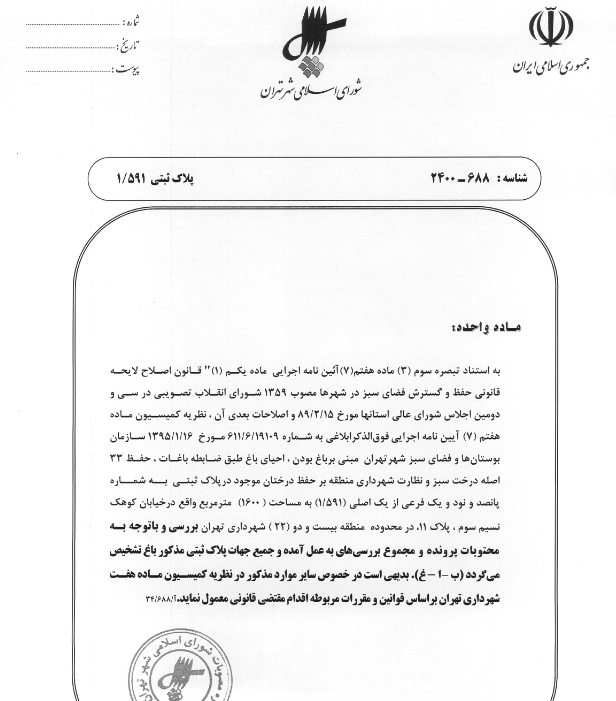 جمهوری اسلامی ایران
شورای اسلامی شهر تهران
شماره :
تاریخ :
پیوست :
شناسه : ۶۸۸ – ۲۴۰۰
پلاک ثبتی ۱/۵۹۱
ماده واحده:
به استناد تبصره سوم (۳) ماده هفتم(۷)آئین نامه اجرایی ماده یکم (۱)" قانون اصلاح لایحه
قانونی حفظ و گسترش فضای سبز در شهرها مصوب ۱۳۵۹ شورای انقلاب تصویبی در سی و
دومین اجلاس شورای عالی استانها مورخ ۸۹/۲/۱۵ و اصلاحات بعدی آن ، نظریه کمیسیون ماده
هفتم (۷) آیین نامه اجرایی فوق‌الذکرابلاغی به شماره ۶۱۱/۶/۱۹۱۰۹ مورخ ۱۳۹۵/۱/۱۶ سازمان
بوستان‌ها و فضای سبز شهر تهران مبنی برباغ بودن ، احیای باغ طبق ضابطه باغات ، حفظ ۳۳
اصله درخت سبز و نظارت شهرداری منطقه بر حفظ درختان موجود درپلاک ثبتی به شماره
پانصد و نود و یک فرعی از یک اصلی (۱/۵۹۱) به مساحت (۱۶۰۰) مترمربع واقع درخیابان کوهک
نسیم سوم ، پلاک ۱۱، در محدوده منطقه بیست و دو (۲۲) شهرداری تهران بررسی و باتوجه به
محتویات پرونده و مجموع بررسی‌های به عمل آمده و جمیع جهات پلاک ثبتی مذکور باغ تشخیص
می‌گردد (ب –۱ – غ). بدیهی است در خصوص سایر موارد مذکور در نظریه کمیسیون ماده هفت
شهرداری تهران براساس قوانین و مقررات مربوطه اقدام مقتضی قانونی معمول نماید.
مصوبات شورای اسلامی شهر تهران